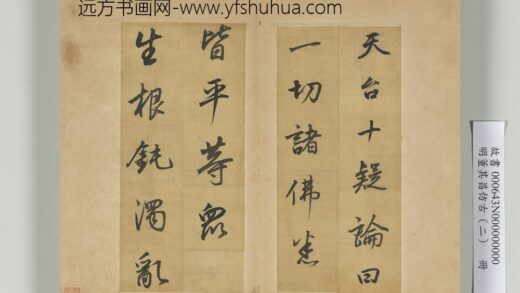 远方书画网-www.yfshuhua.com
天台十疑論曰
一切諸佛悉
皆平等眾
生根鈍濁亂
故書 000643N000000000
明董其昌仿古（二） 冊